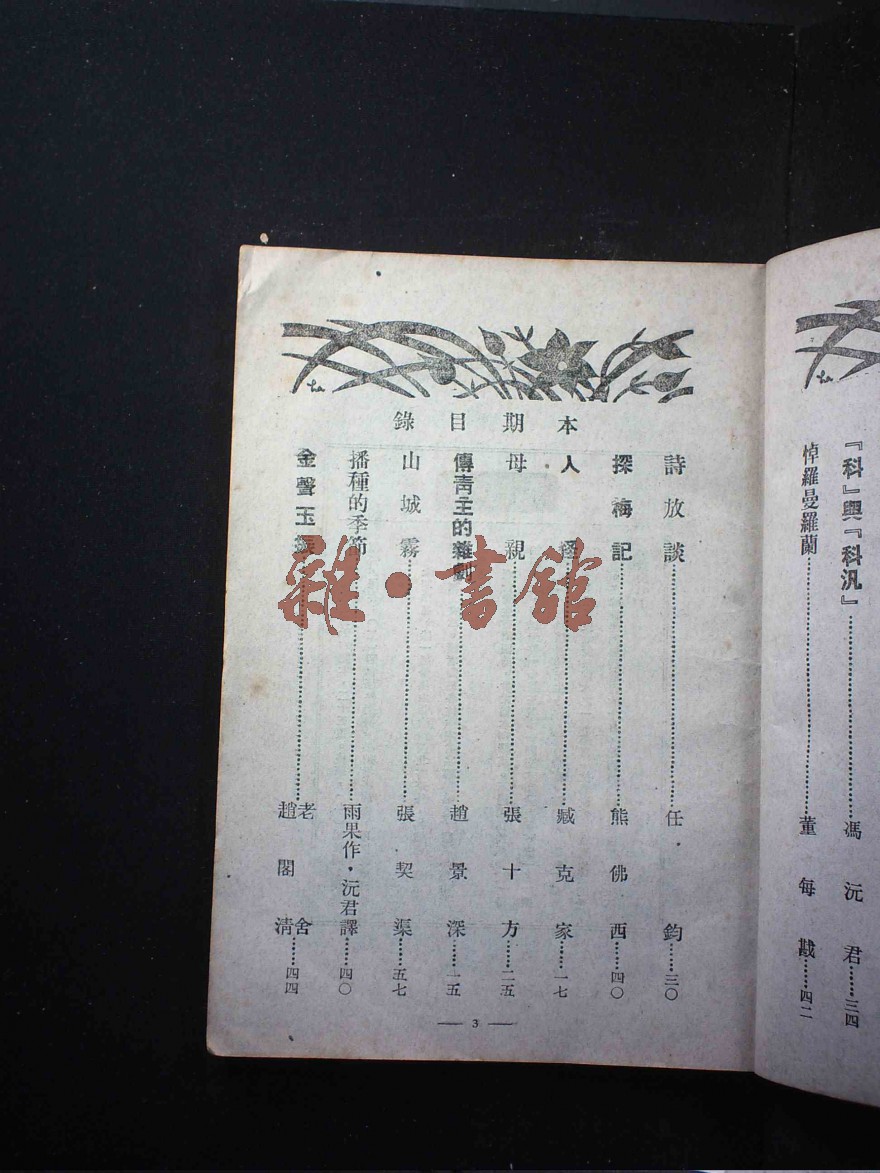 『科』與『科汎』……馮沅君……三四
悼羅曼羅蘭……董每戡……四二
本期目錄
詩放談……任鈞……三〇
探梅記……熊佛西……四〇
人……臧克家……一七
母親……張十方……二五
傳青主的雜劇……趙景深……一五
山城霧……張契渠……五七
播種的季節……雨果作·沅君譯……四〇
金聲玉振……老舍 趙閣清……四四
雜·書館
— 3 —